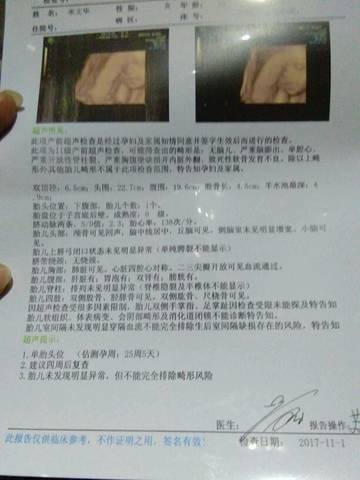 姓 名： 性 别： 女 年 龄：
病 区： 床 号：
住院号：
超声所见：
此项产前超声检查是经过孕妇及家属知情同意并签字生效后而进行的检查。
此项为II级产前超声检查，可能筛查出的畸形是：无脑儿、单腔心、
严重开放性脊柱裂、严重胸腹壁缺损并内脏外翻、致死性软骨发育不良。除以上畸
形外其他胎儿畸形不属于此项检查范围，特告知孕妇及家属。
双顶径：6.5cm；头围：22.7cm；腹围：19.6cm；股骨长：4.5cm；羊水池最深：4
.9cm；
胎头位置：下腹部，胎儿个数：1个。
胎盘位于子宫底后壁，成熟度：0 级。
脐动脉两条，S/D值：2.3；胎心率：138次/分。
胎儿头部：颅骨可见回声，脑中线居中，丘脑可见，侧脑室未见明显增宽。小脑可
见。
胎儿上唇弓闭口状态未见明显异常（单纯腭裂不能显示）
脐带绕颈：无绕颈。
胎儿胸部：肺脏可见。心脏四腔心对称。二三尖瓣开放可见血流通过。
胎儿腹部：肝脏有；胃泡有；双肾有；膀胱有。
胎儿脊柱：排列未见明显异常（脊椎隐裂及半椎体不能显示）
胎儿四肢：双侧股骨、胫腓骨可见。双侧肱骨、尺桡骨可见。
因超声检查受很多因素限制，胎儿双侧手掌指、足掌趾因检查受限未能探及特告知
胎儿软组织、体表病变、会阴部畸形及消化道闭锁不能诊断特告知
胎儿室间隔未发现明显穿隔血流不能完全排除生后室间隔缺损存在的风险。特告知
超声提示：
1.单胎头位 （估测孕周：25周5天）
2.建议四周后复查
3.胎儿未发现明显异常，但不能完全排除畸形风险
医生： 报告操作：
此报告仅供临床参考，不作证明之用，签名有效！ 检查日期： 2017-11-1